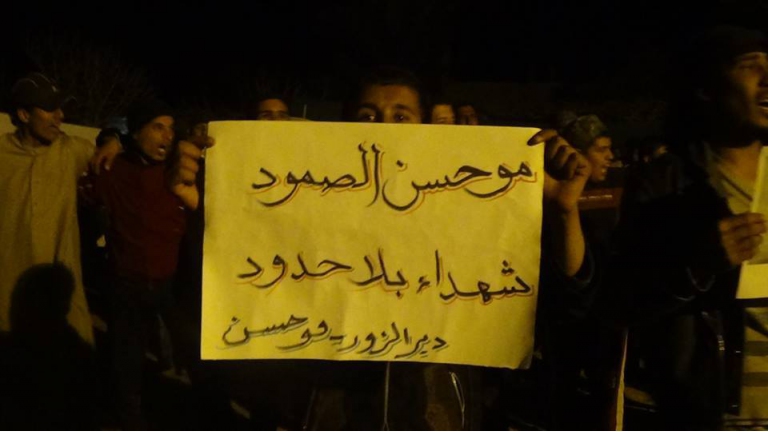 موحسن الصمود
شهداء بلا حدود
دير الزور - موحسن